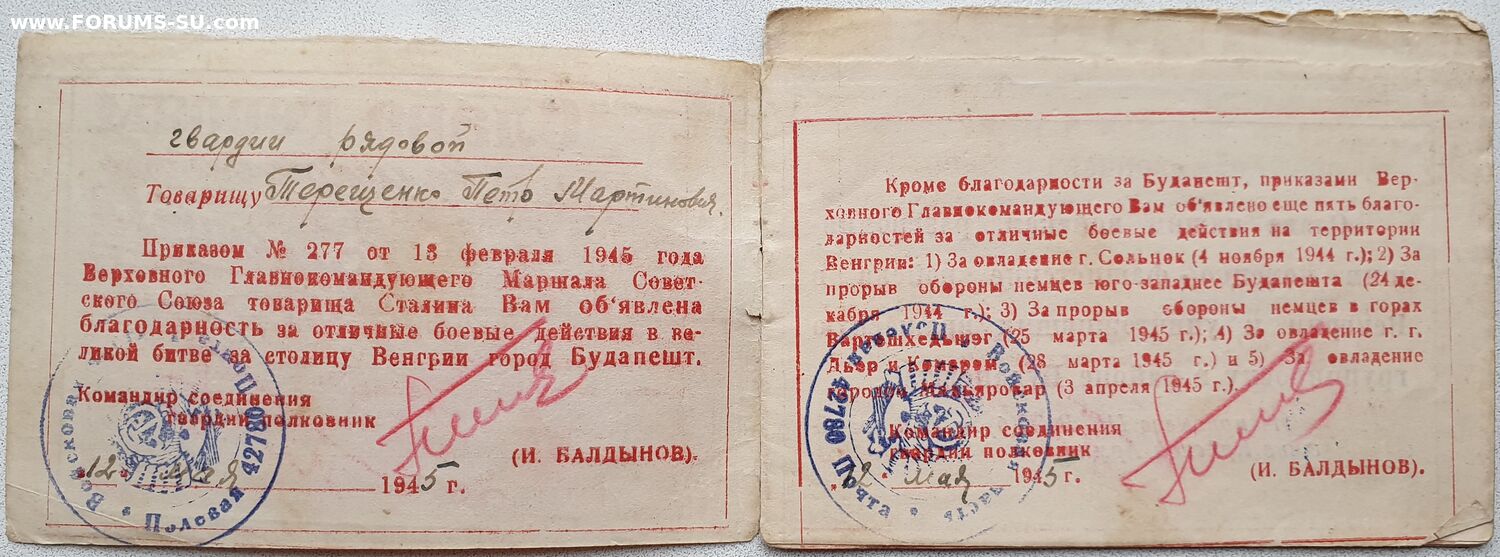 www.FORUMS-SU.com
гвардии рядовой
Товарищу Терещенко Петр Мартинович.
Приказом № 277 от 13 февраля 1945 года
Верховного Главнокомандующего Маршала Совет-
ского Союза товарища Сталина Вам об‘явлена
благодарность за отличные боевые действия в ве-
ликой битве за столицу Венгрии город Будапешт.
Командир соединения
гвардии полковник
(И. БАЛДЫНОВ).
„12“ мая 1945 г.
Полевая почта 42780 • Войсковая часть •
Кроме благодарности за Будапешт, приказами Вер-
ховного Главнокомандующего Вам об‘явлено еще пять благо-
дарностей за отличные боевые действия на территории
Венгрии: 1) За овладение г. Сольнок (4 ноября 1944 г.); 2) За
прорыв обороны немцев юго-западнее Будапешта (24 де-
кабря 1944 г.); 3) За прорыв обороны немцев в горах
Вэртэшхедьшэг (25 марта 1945 г.); 4) За овладение г. г.
Дьер и Комаром (28 марта 1945 г.) и 5) За овладение
городом Мадьяровар (3 апреля 1945 г.).
Командир соединения
гвардии полковник
(И. БАЛДЫНОВ).
„12 мая 1945 г.
Полевая почта 42780 • Войсковая часть •